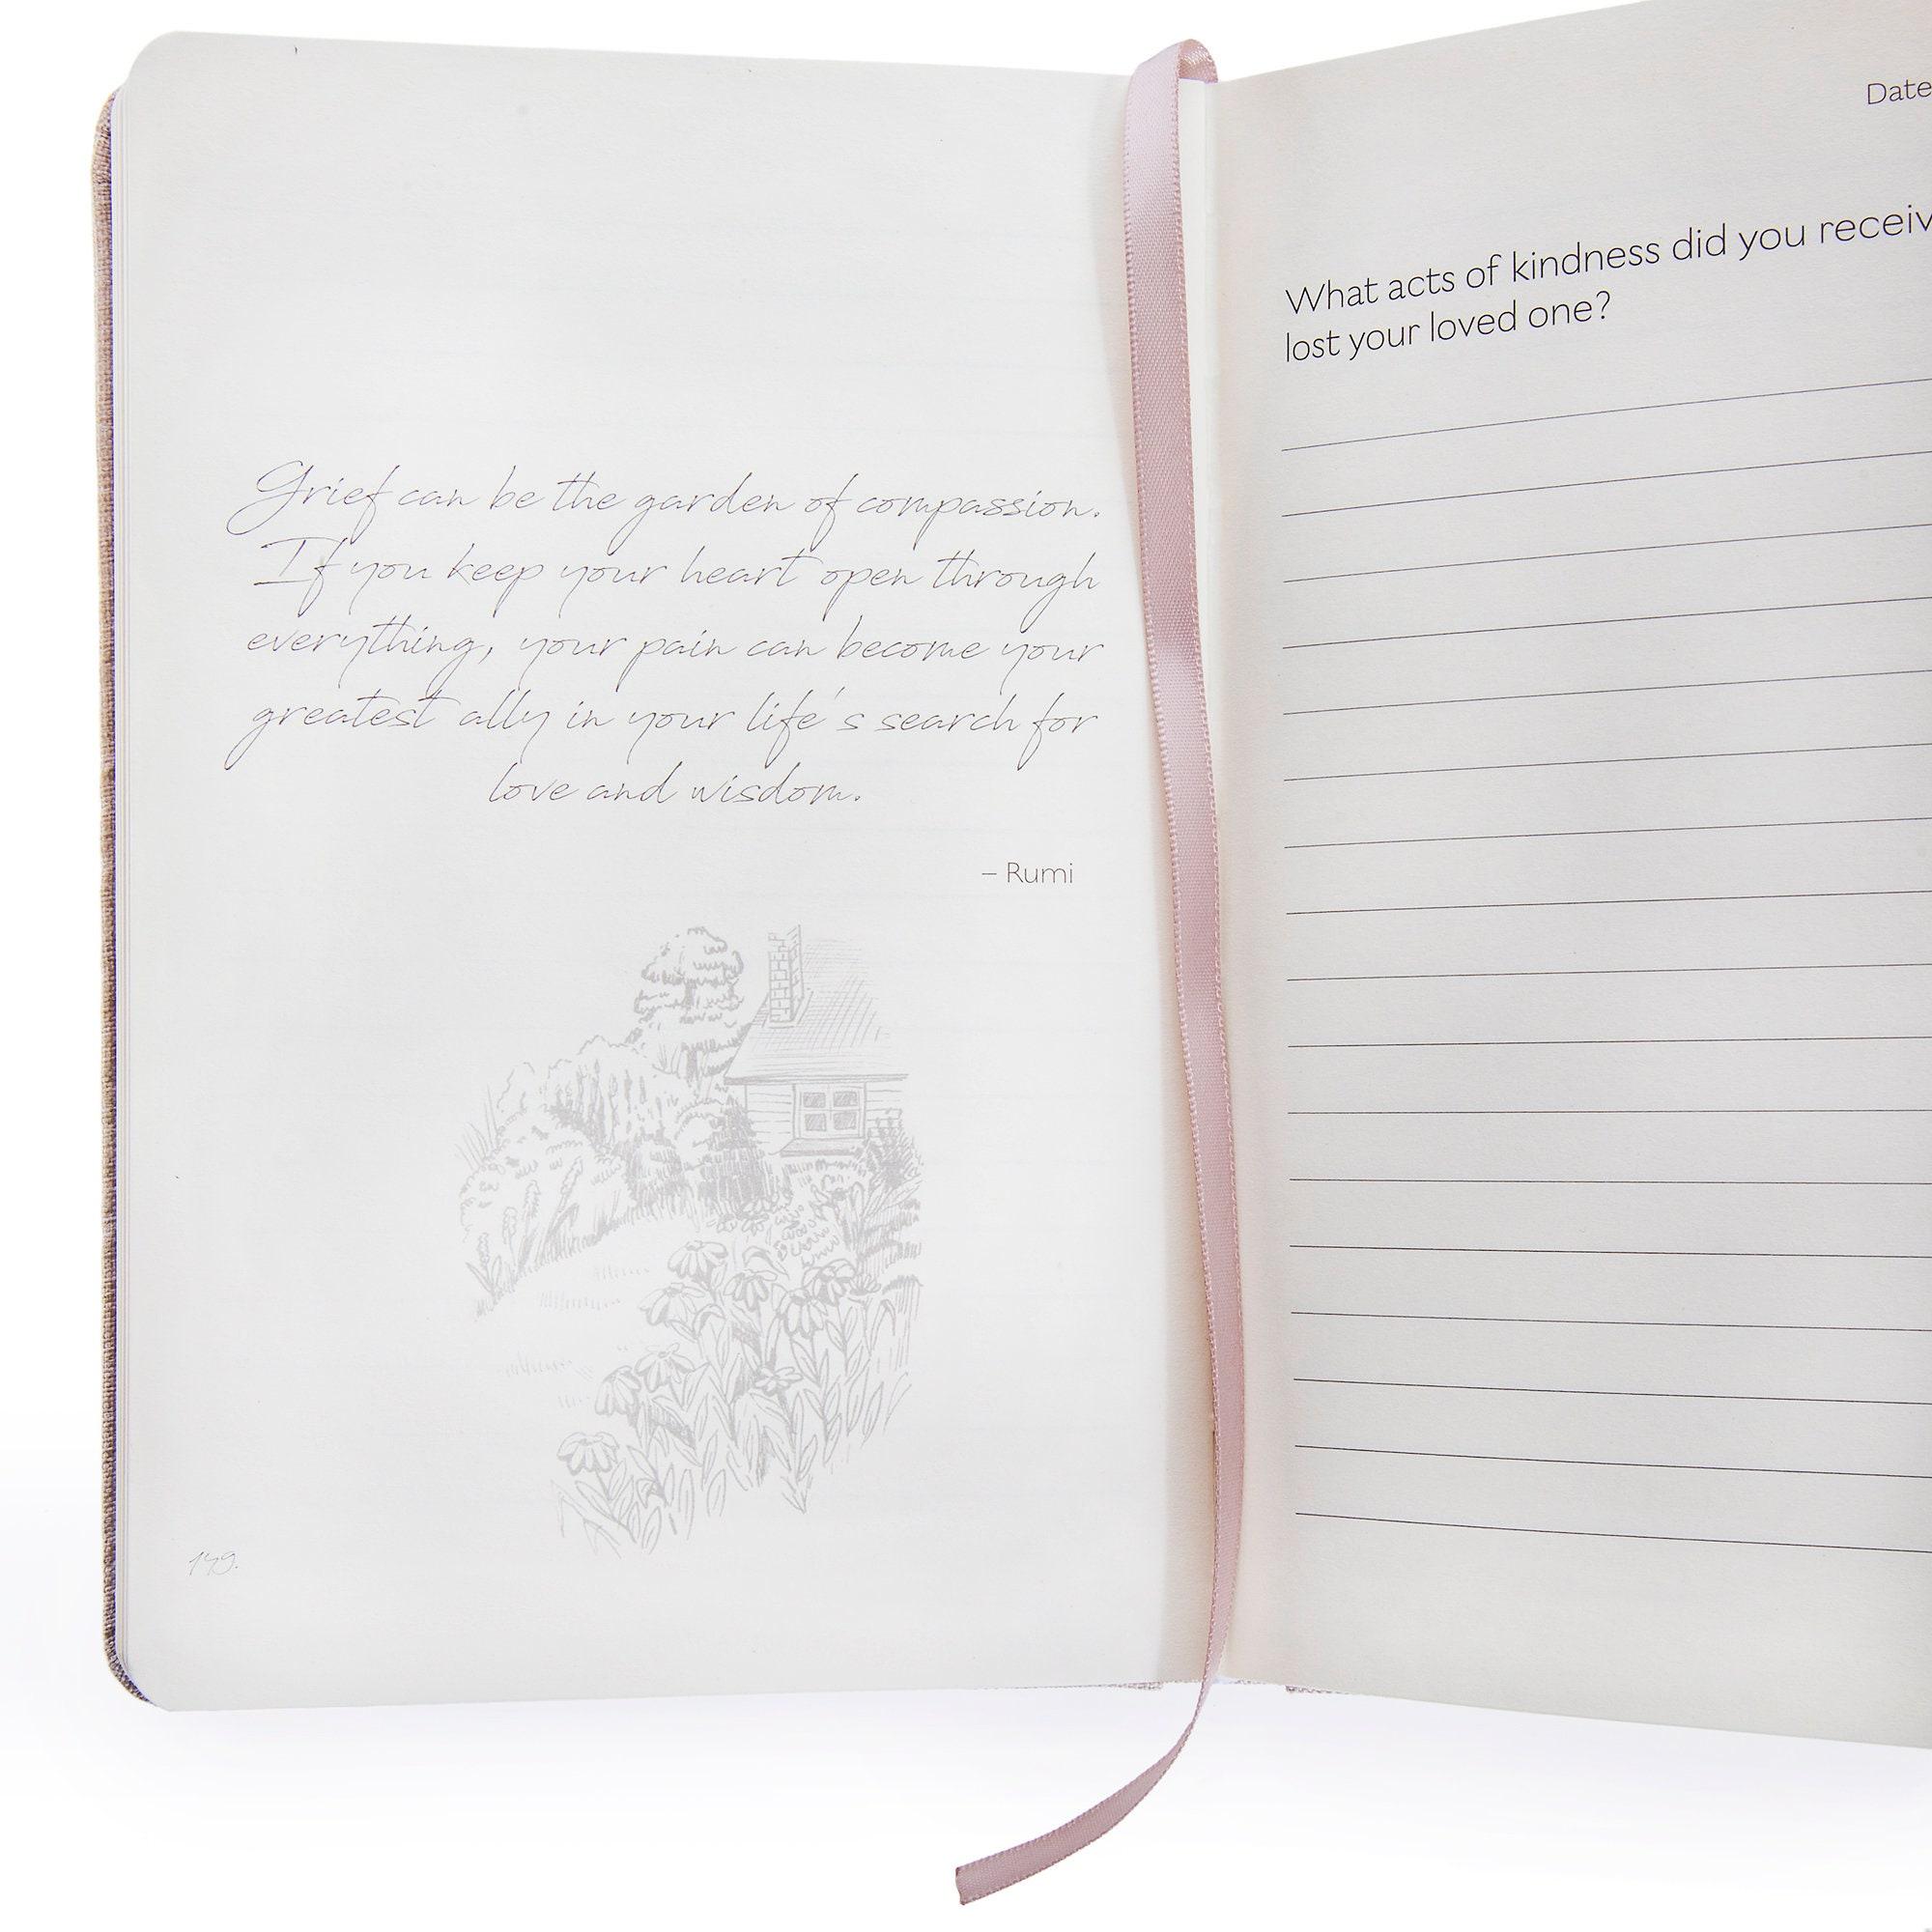 Grief can be the garden of compassion.
If you keep your heart open through
everything, your pain can become your
greatest ally in your life's search for
love and wisdom.
– Rumi
149.
Date
What acts of kindness did you receiv
lost your loved one?